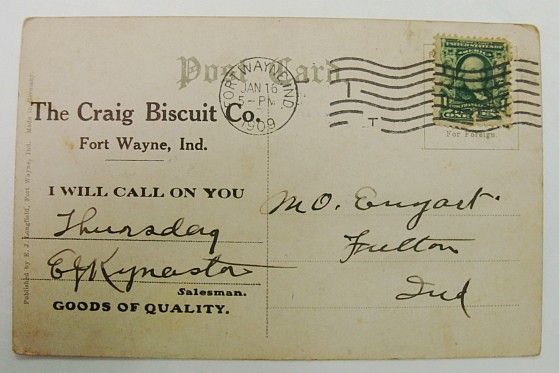 Post Card
FORT WAYNE, IND.
JAN 16
5-PM
1909
The Craig Biscuit Co.
Fort Wayne, Ind.
I WILL CALL ON YOU
Thursday
E J Kynaston
Salesman.
GOODS OF QUALITY.
M O. Engart.
Fulton
Ind
For Foreign.
Published by E. J. Longfield, Fort Wayne, Ind. Made in Germany